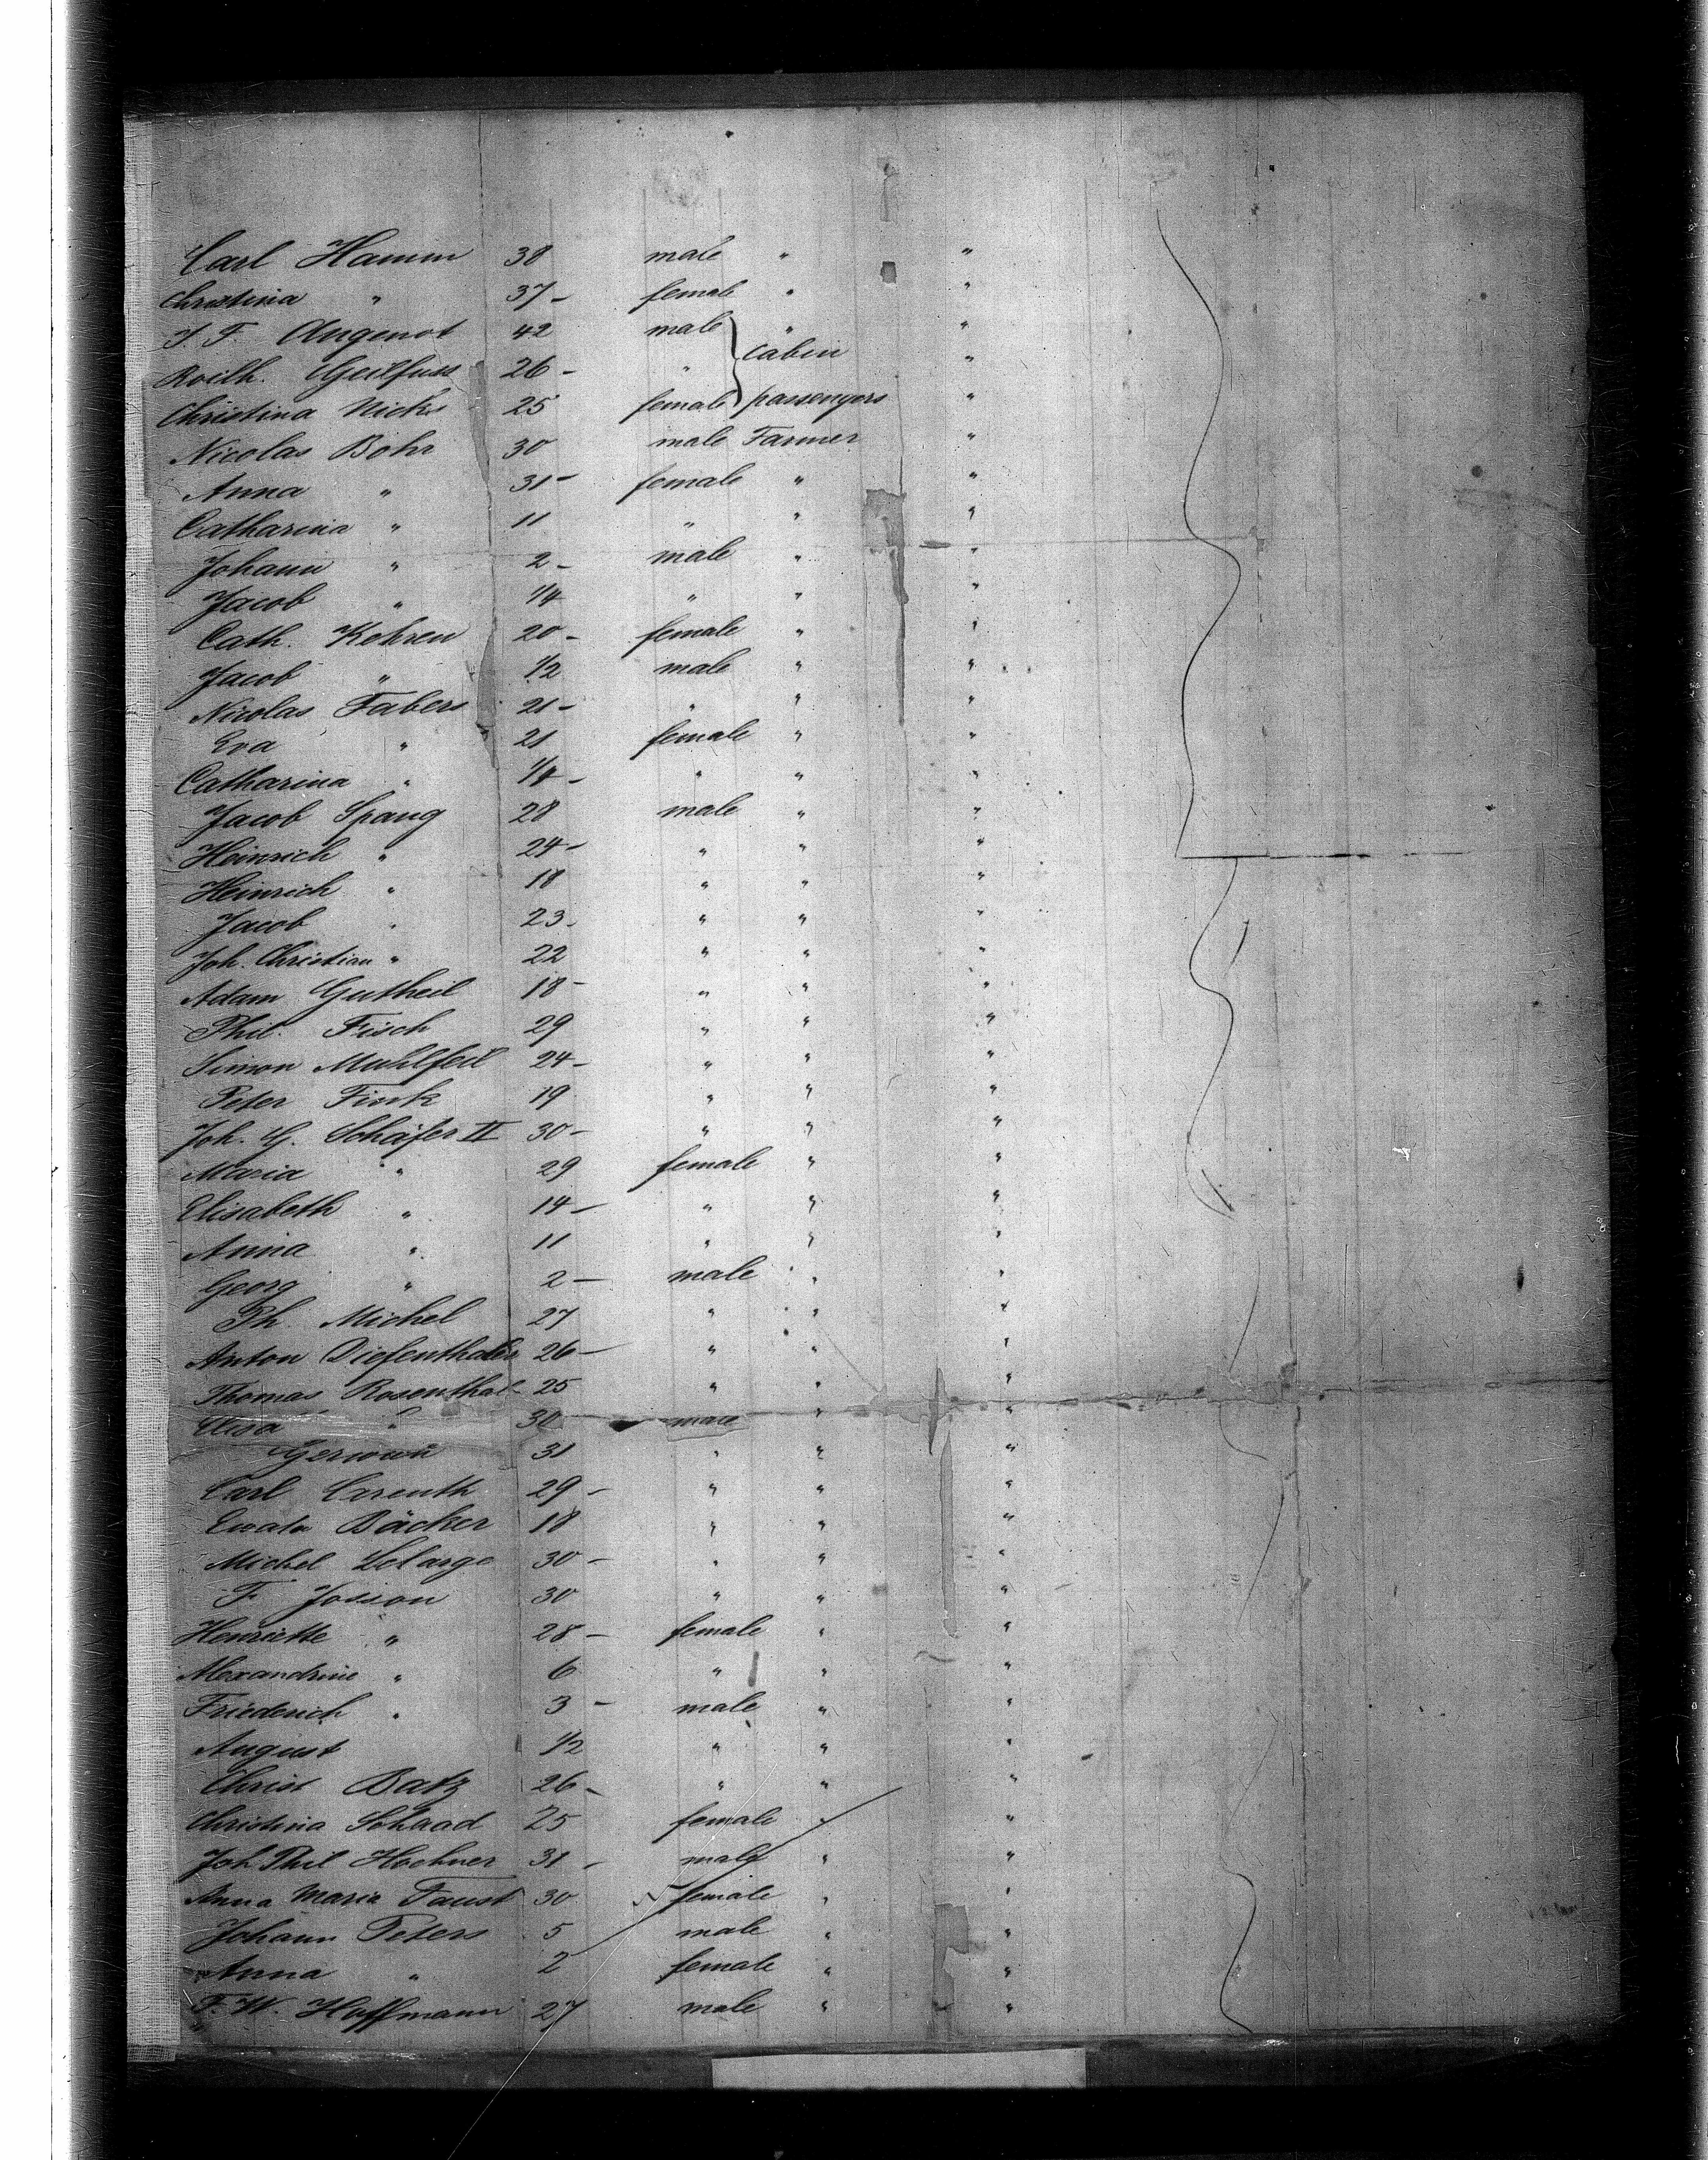 Carl Hamm 38 male " "
Christina " 37 - female " "
J. F. Angenot 42 male " "
Roilh. Geilfuss 26 - " cabin "
Christina Nicks 25 female passengers "
Nicolas Bohr 30 male Farmer "
Anna " 31 - female " "
Catharina " 11 " " "
Johann " 2 - male " "
Jacob " 1/4 " " "
Cath. Kehren 20 - female " "
Jacob " 1/2 male " "
Nicolas Fabers 21 - " " "
Eva " 21 female " "
Catharina " 1/4 - " " "
Jacob Spang 28 male " "
Heinrich " 24 - " " "
Heinrich " 18 " " "
Jacob " 23 - " " "
Joh. Christian " 22 " " "
Adam Gutheil 18 - " " "
Phil. Fisch 29 " " "
Simon Muhlfeil 24 - " " "
Peter Fink 19 " " "
Joh. G. Schäfer II 30 - " " "
Maria " 29 female " "
Elisabeth " 14 - " " "
Anna " 11 " " "
Georg " 2 - male " "
Ph. Michel 27 " " "
Anton Diefenthaler 26 - " " "
Thomas Rosenthal 25 " " "
Elisa " 30 male " "
31 " " "
Carl 29 - " " "
Bäcker 18 " " "
Michel Lelarge 30 - " " "
F. Josson 30 " " "
Henriette " 28 - female " "
Alexandrine " 6 " " "
Friederich " 3 - male " "
August 1/2 " " "
Christ Batz 26 - " " "
Christina Schaad 25 female " "
Joh. Phil Hochner 31 - male " "
Anna Maria Faust 30 female " "
Johann Peters 5 male " "
Anna " 2 female " "
F. W. Hoffmann 27 male " "